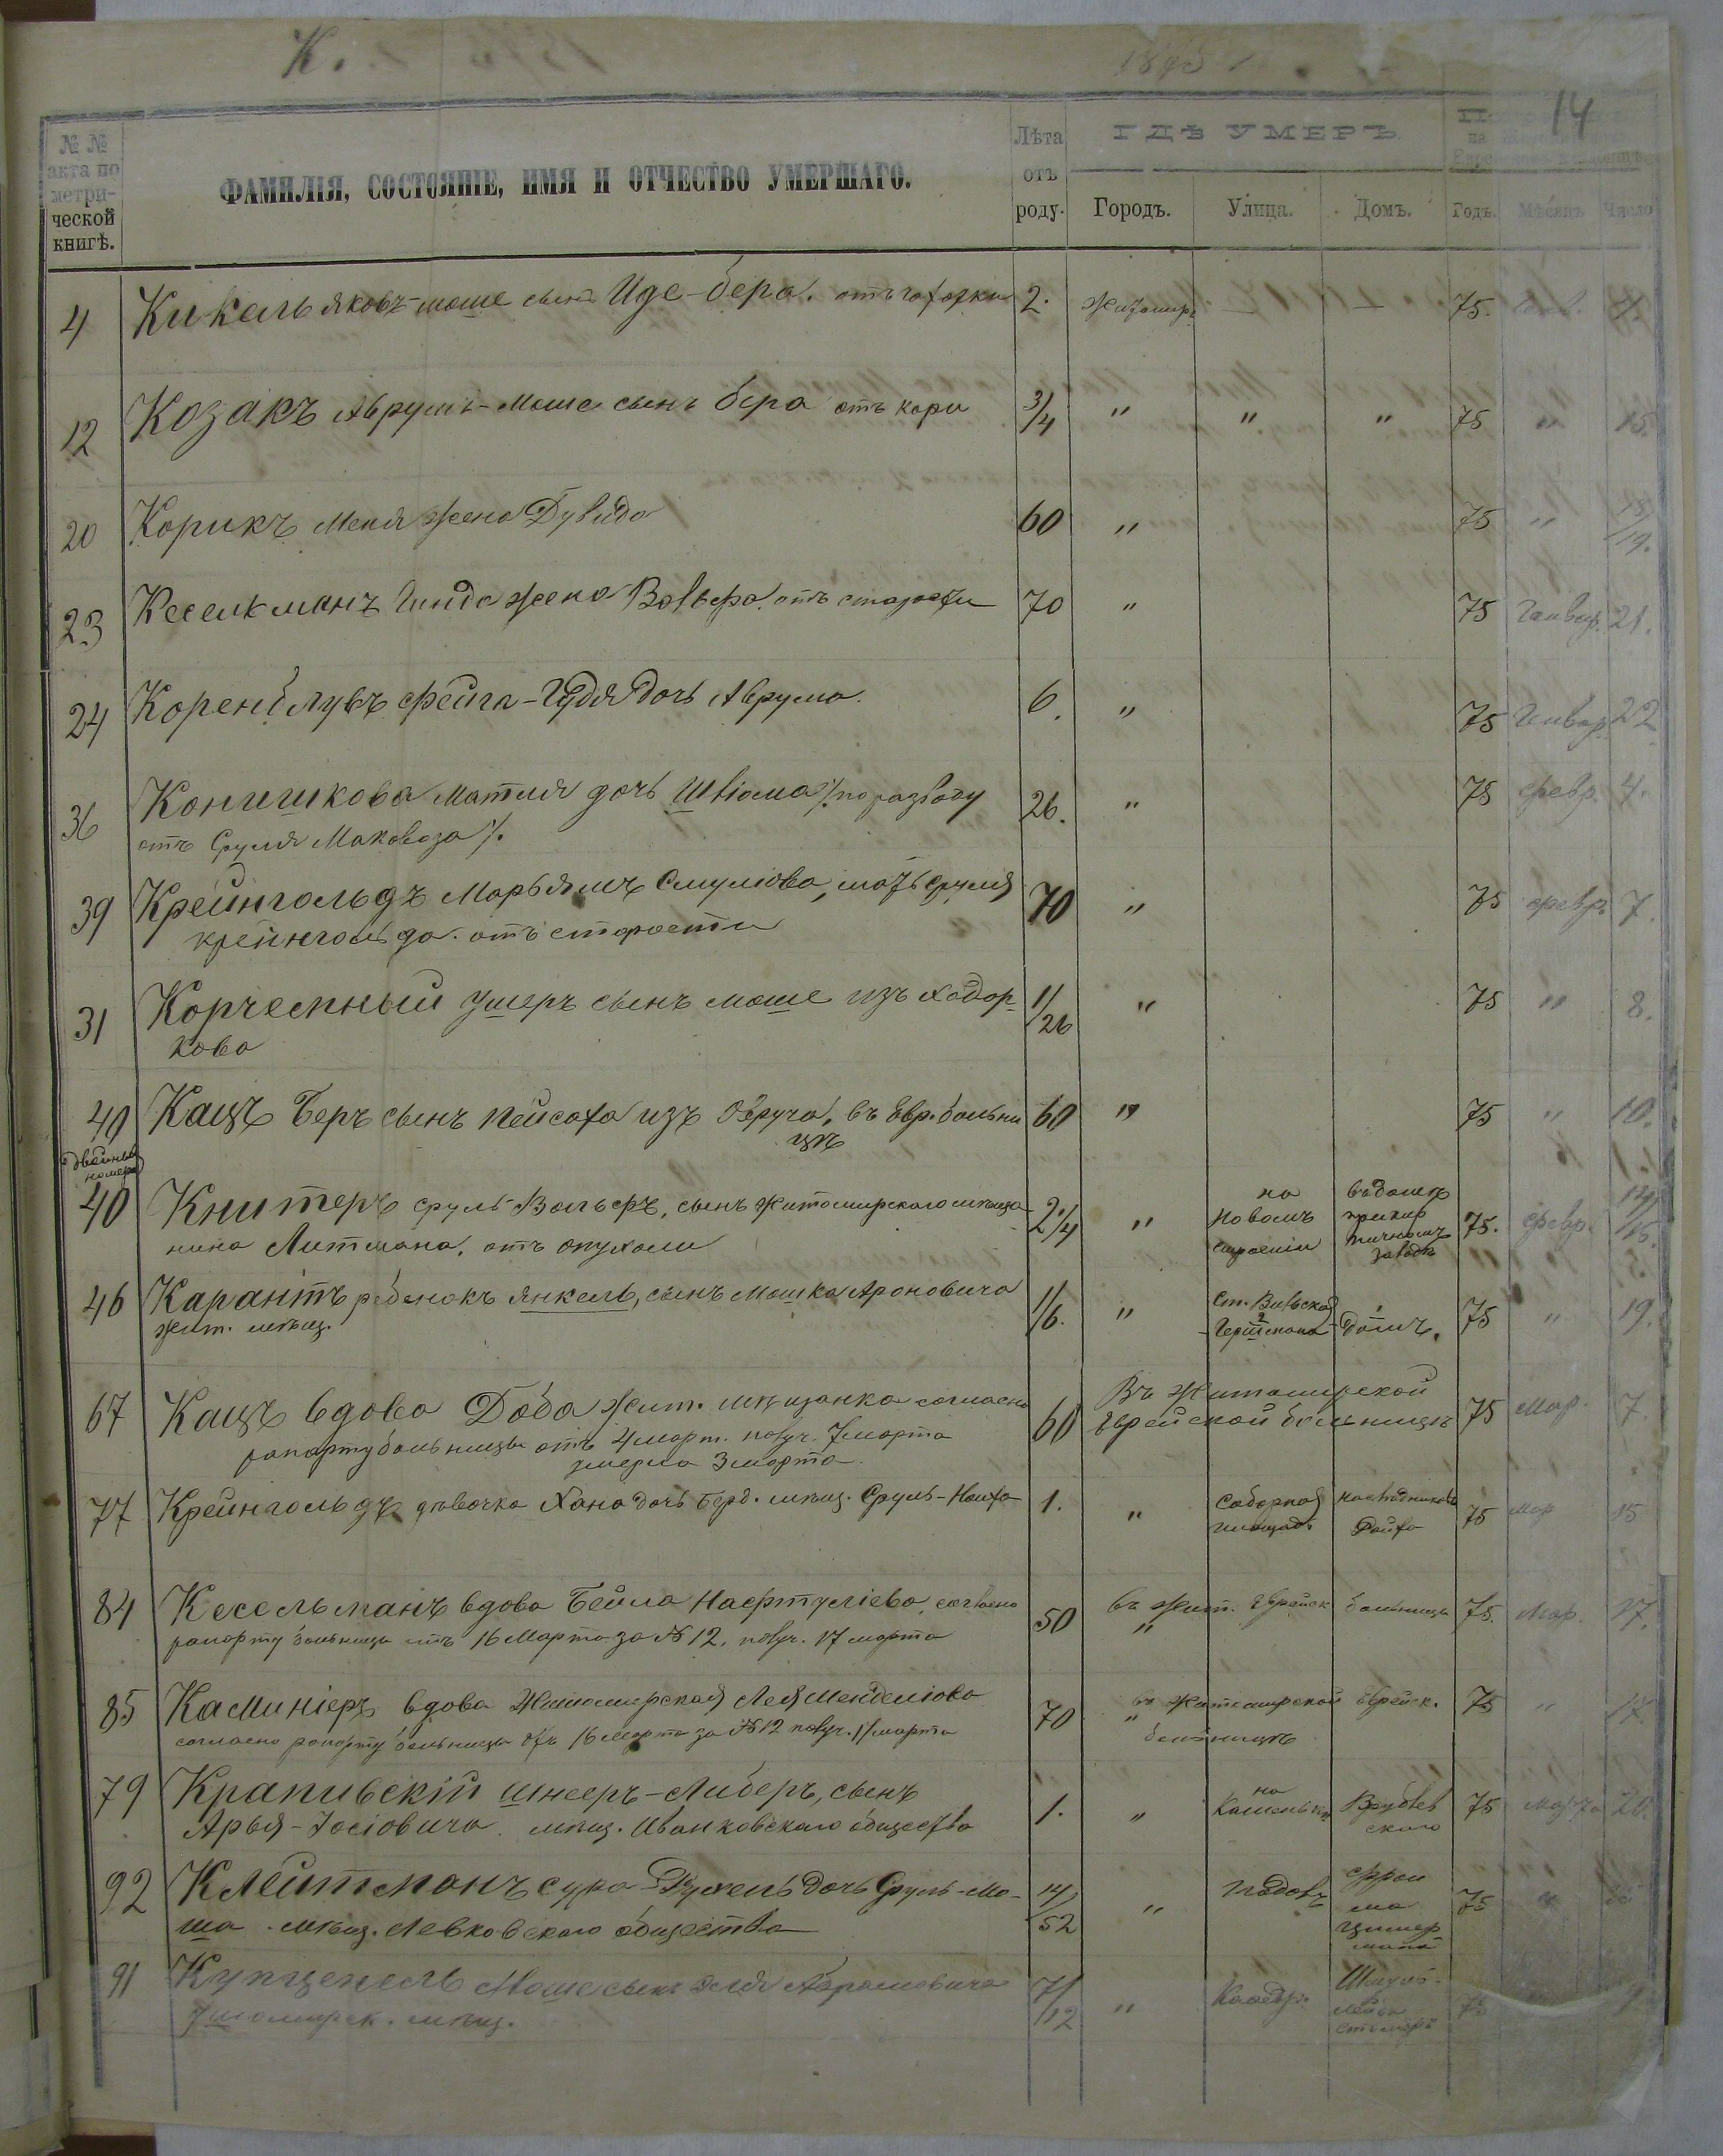 К.
1875
14
№ №
акта по
метри-
ческой
книгѣ.
ФАМИЛІЯ, СОСТОЯНІЕ, ИМЯ И ОТЧЕСТВО УМЕРШАГО.
Лѣта
отъ
роду.
ГДѢ УМЕРЪ
Городъ. Улица. Домъ. Годъ. Мѣсяцъ Число
4 Кикель Яковъ-Моше сынъ Иде-Бера. отъ чахотки 2. Житомиръ — — 75.
12 Козакъ Аврумъ-Моше сынъ Бера отъ кори 3/4 " " " 75 " 15.
20 Корикъ Меня жена Дувида 60 " 75 " 18/19.
23 Кесельманъ Гинда жена Вольфа. отъ старости 70 " 75 Январ. 21.
24 Коренблувъ Фейга-Гудя дочь Аврума. 6. " 75 Январ. 22
36 Конишкова Матля дочь Швіома /. по разводу 26. " 75 Февр. 4.
отъ Сруля Маковоза /.
39 Крейнгольдъ Марьямъ Смуліова, мать Сруля 70 " 75 Февр. 7.
Крейнгольда. отъ старости
31 Корчемный Ушеръ сынъ Моше изъ Ходор- 1/26 " 75 " 8.
кова
40 Кацъ Беръ сынъ Пейсаха изъ Овруча, въ Евр. больни 60 " 75 " 10.
цѣ
двойный
номеръ
40 Книтеръ Сруль-Вольфъ, сынъ Житомирскаго мѣща- 2/4 " на Новомъ строеніи въ домѣ при кир пичномъ заводѣ 75. Февр. 14/15.
нина Литмана. отъ опухоли
46 Карантъ ребенокъ Янкель, сынъ Мошка Ароновича 1/6. " Ст. Вильская Герштмана домъ. 75 " 19.
жит. мѣщ.
67 Кацъ вдова Доба Жит. мѣщанка согласно 60 Въ Житомирской Еврейской больницѣ 75 Мар. 7.
рапорту больницы отъ 4 март. получ. 7 марта
умерла 3 марта.
77 Крейнгольдъ дѣвочка Хана дочь Берд. мѣщ. Сруль-Ноиха 1. " Соборная площадь наслѣдниковъ Ройха 75 Мар 15
84 Кесельманъ вдова Бейла Нафтуліева, согласно 50 въ Жит. Еврейск больницы 75. Мар. 17.
рапорту больницы отъ 16 Марта за № 12, получ. 17 марта
85 Каминіеръ вдова Житомирская Лея Менделіова 70 въ Житомирской Еврейск. больницѣ 75 " 17.
согласно рапорту больницы отъ 16 Марта за № 12 получ. 17 марта
79 Крапивскій Шнееръ-Либеръ, сынъ 1. " на Каменькѣ Врублевскаго 75 Марта 20.
Арья-Іосіовича мѣщ. Иванковскаго общества
92 Клейтманъ Сура-Рухель дочь Сруль-Мо- 14/52 " Подолъ Фрои ма Цимер мана 75
ша. мѣщ. Левковскаго общества
91 Купценель Моше сынъ Эля Абрамовича 7/12 " Каѳедр. Шмуль-Лейба 75
Житомирск. мѣщ.